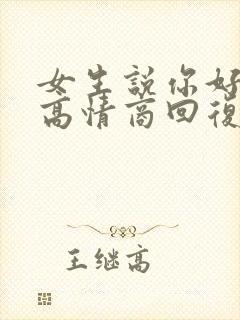 女生説你好
高情商回復
王继高